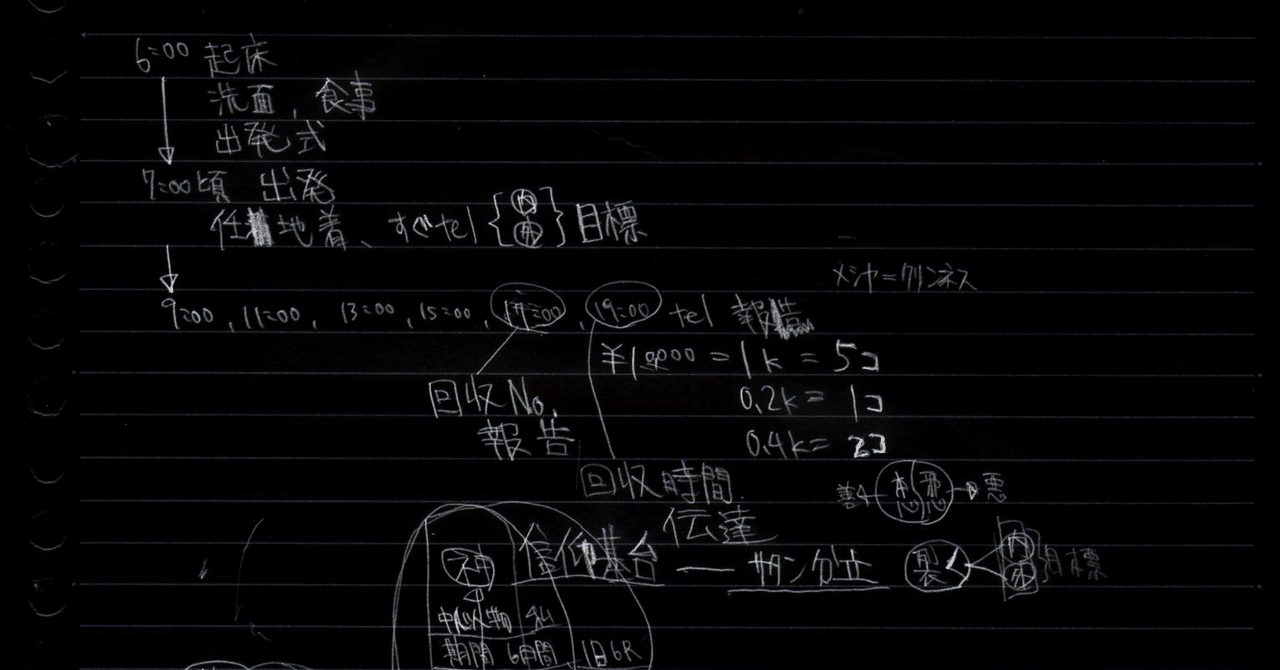 6:00 起床
洗面、食事
出発式
7:00頃 出発
任地着、すぐtel {内 外} 目標
メシヤ=クリンネス
9:00, 11:00, 13:00, 15:00, 17:00, 19:00 tel 報告
¥10000 = 1k = 5コ
回収No. 0.2k = 1コ
報告 0.4k = 2コ
回収時間 善← →悪
伝達
神 信仰基台 — サタン分立 裂く< 内 外 目標
期間 6月間 1日6R